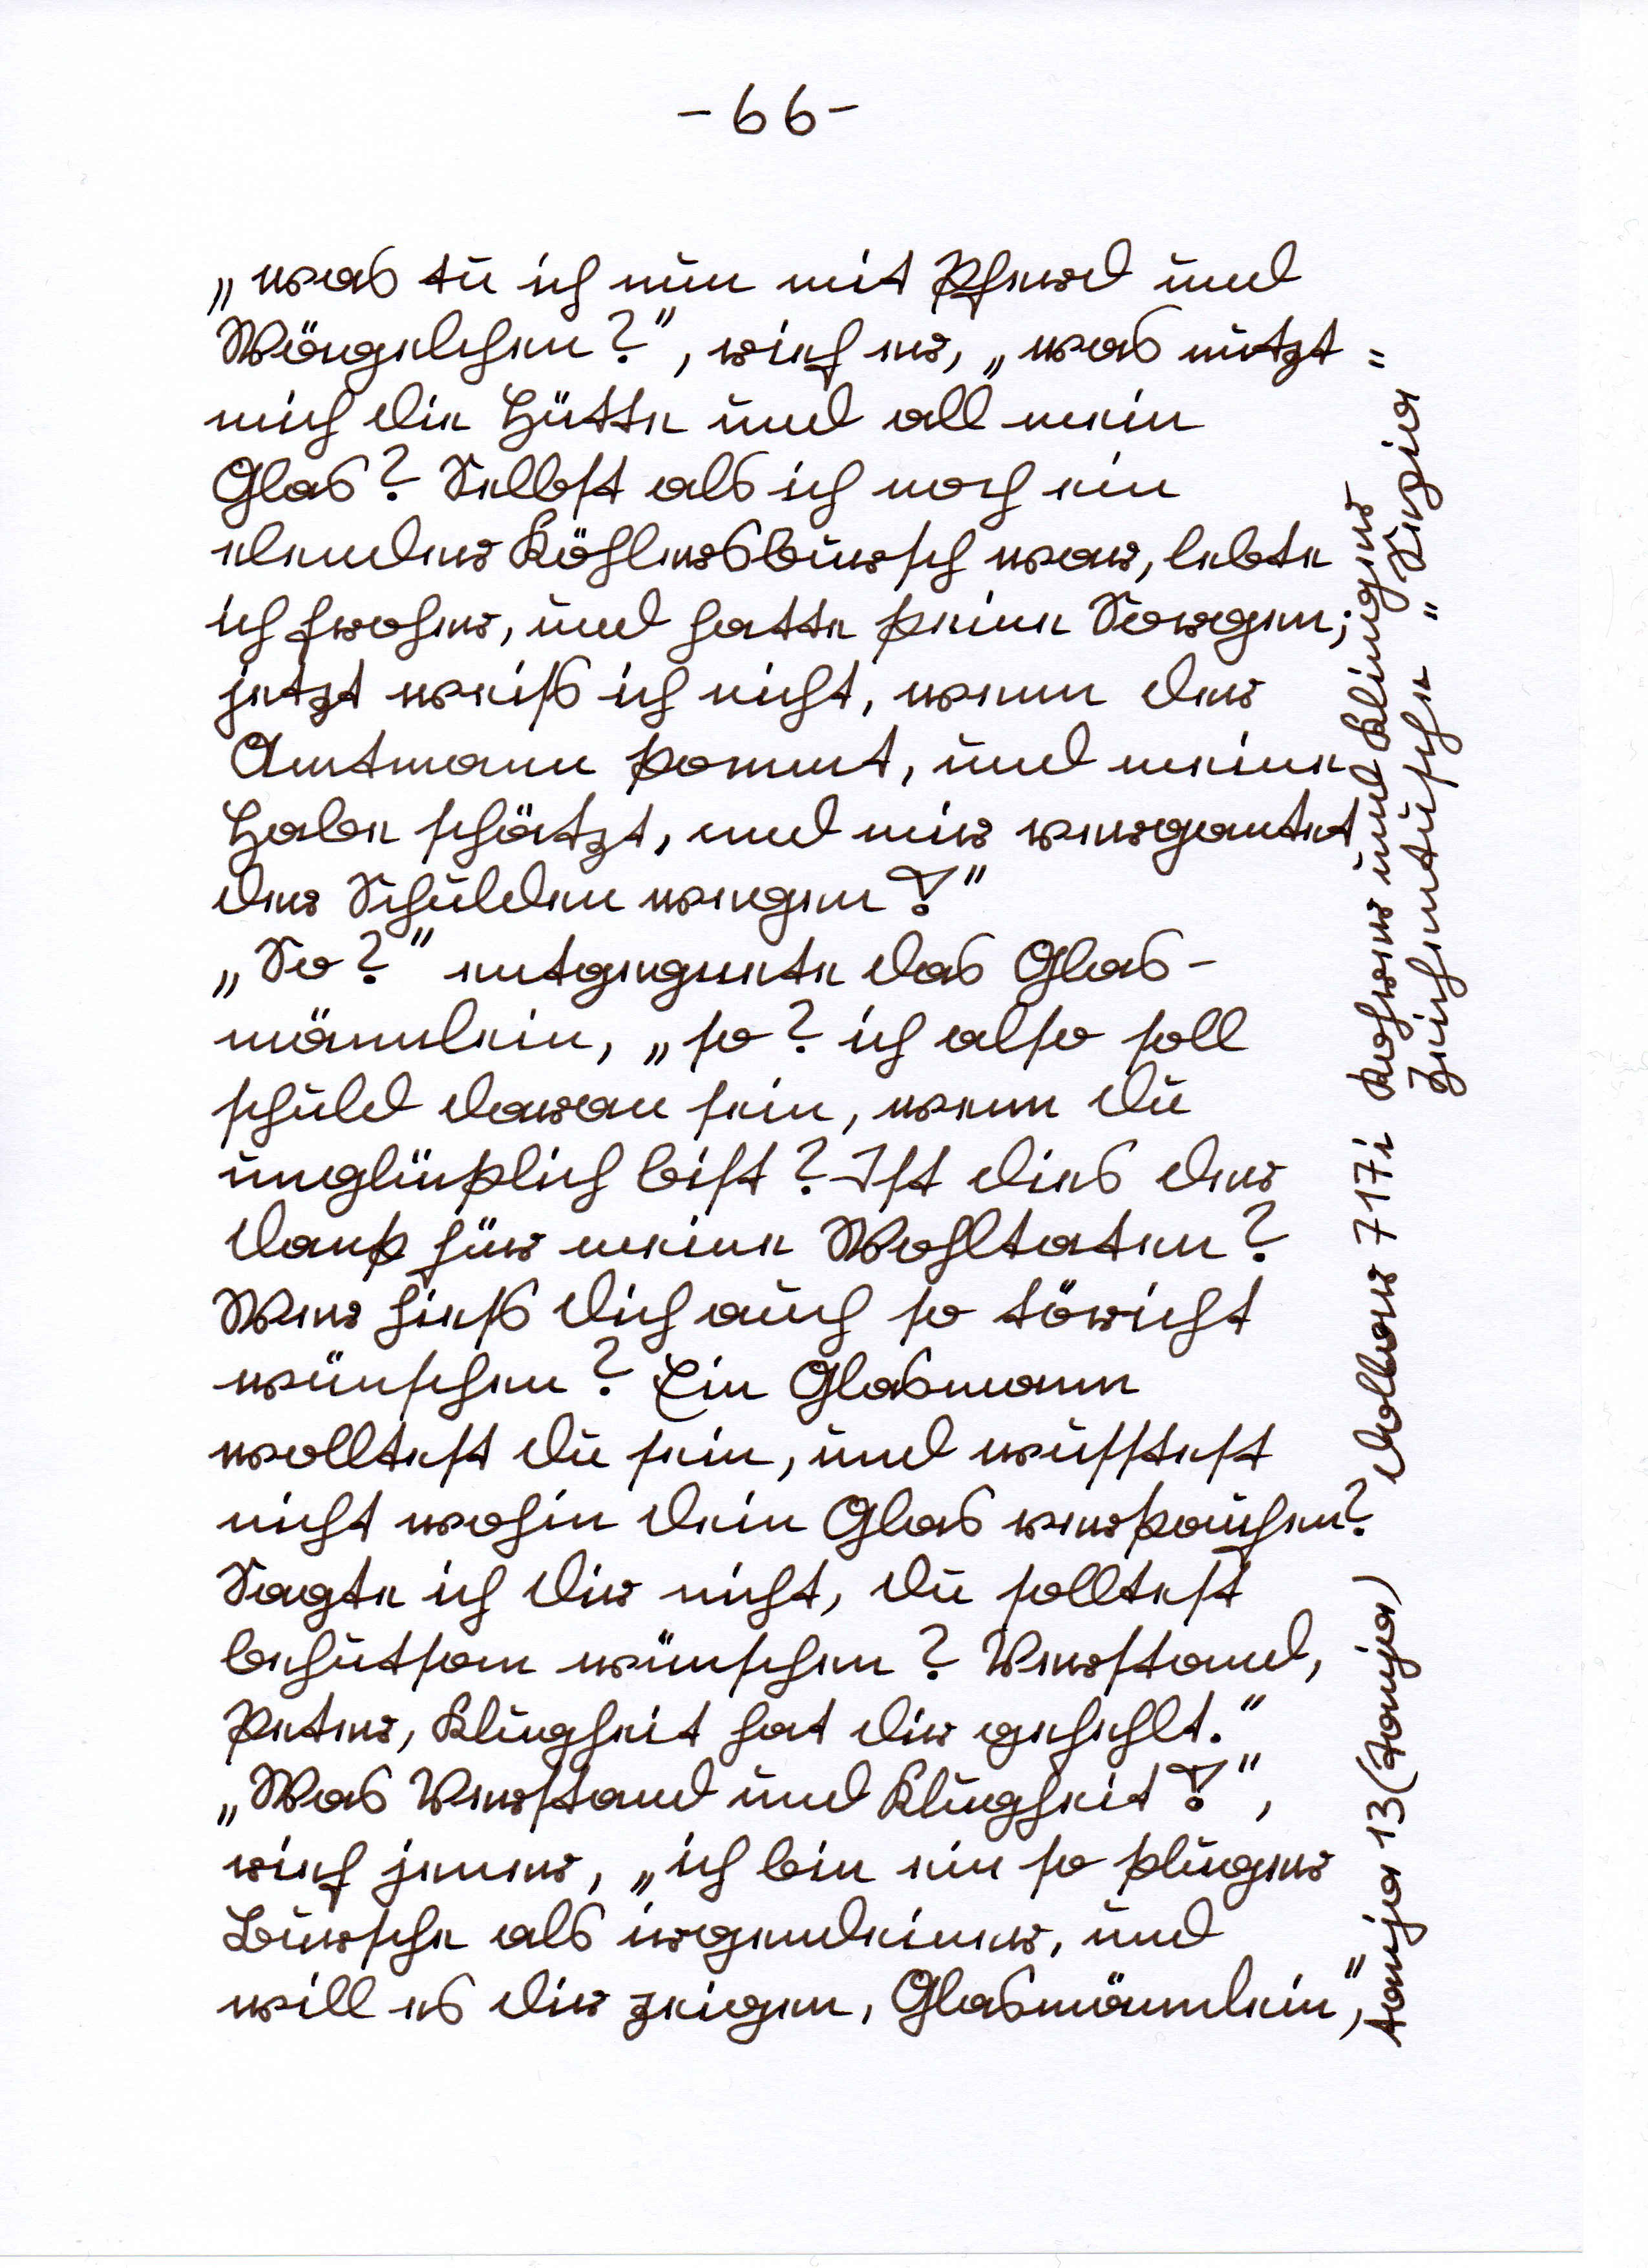 - 66 -
„was tu ich nun mit Pferd und
Wägelchen?", rief er, „was nutzt =
mich die Hütte und all mein
Glas? Selbst als ich noch ein
elender Köhlersbursch war, lebte
ich froher, und hatte keine Sorgen;
jetzt weiß ich nicht, wenn der
Amtmann kommt, und meine
Habe schätzt, und mir vergantet
der Schulden wegen?!"
„So?" entgegnete das Glas-
männlein, „so? ich also soll
schuld daran sein, wenn du
unglücklich bist? Ist dies der
Dank für meine Wohltaten?
Wer hieß dich auch so töricht
wünschen? Ein Glasmann
wolltest du sein, und wusstest
nicht wohin dein Glas verkaufen?
Sagte ich dir nicht, du solltest
behutsam wünschen? Verstand,
Peter, Klugheit hat dir gefehlt."
„Was Verstand und Klugheit?!",
rief jener, „ich bin ein so kluger
Bursche als irgendeiner, und
will es dir zeigen, Glasmännlein",
Tanja 13 (Tanja) 717i Rohrer und Klinger
Zeichentusche "Sepia"